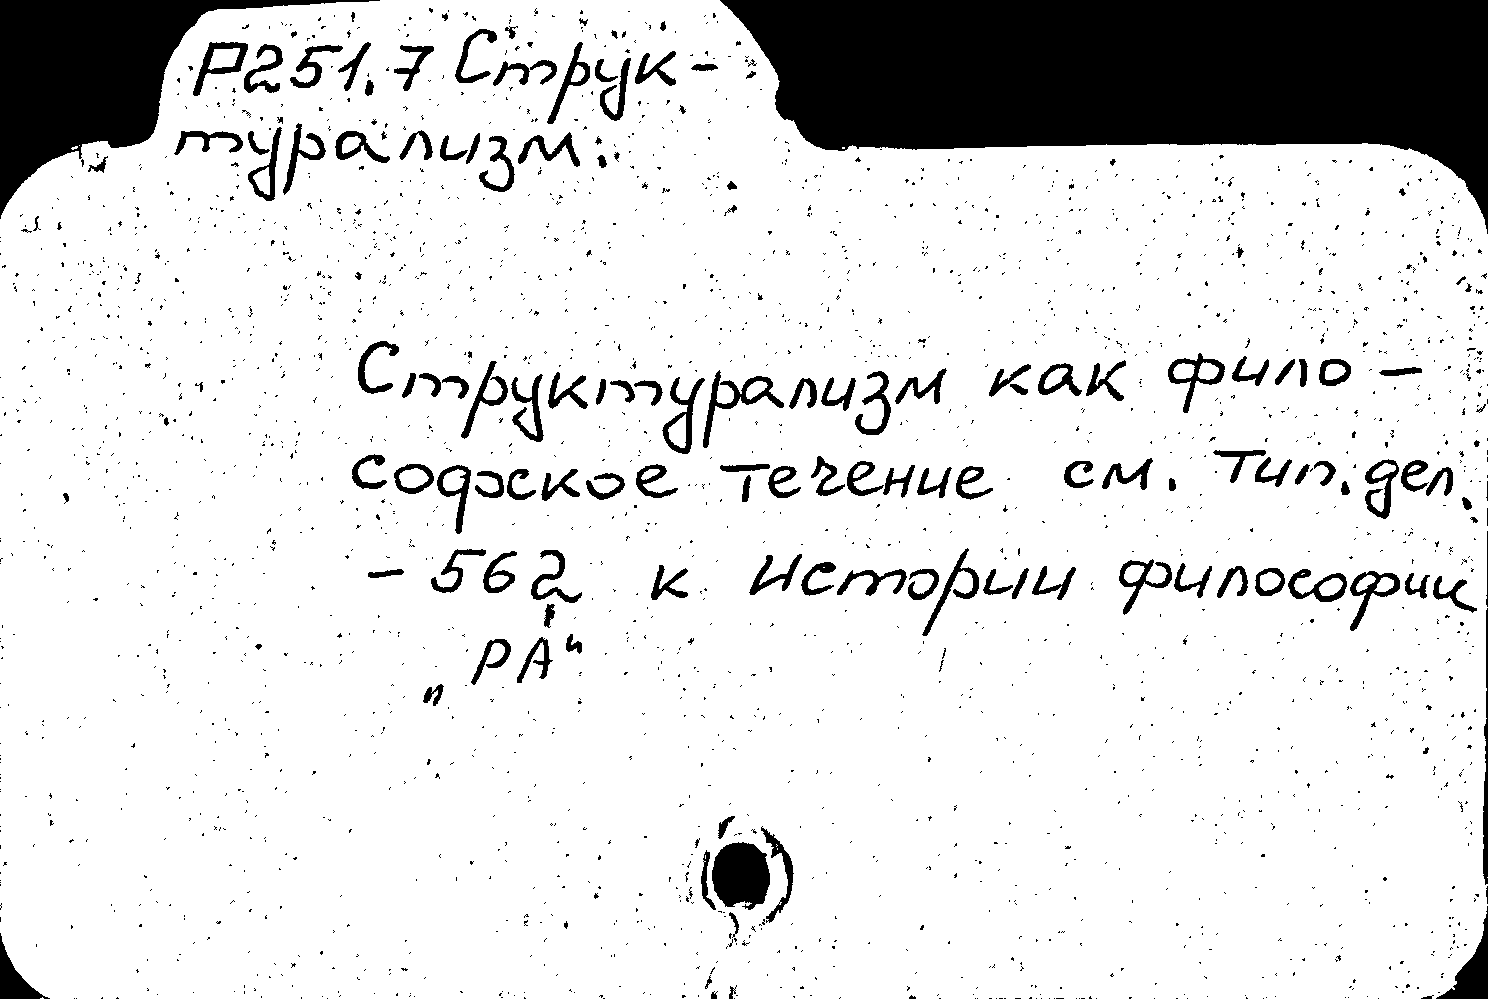 Р251.7 Струк-
турализм.
Структурализм как фило-
софское течение см. Тип. дел.
- 562 к истории философии
„РА“